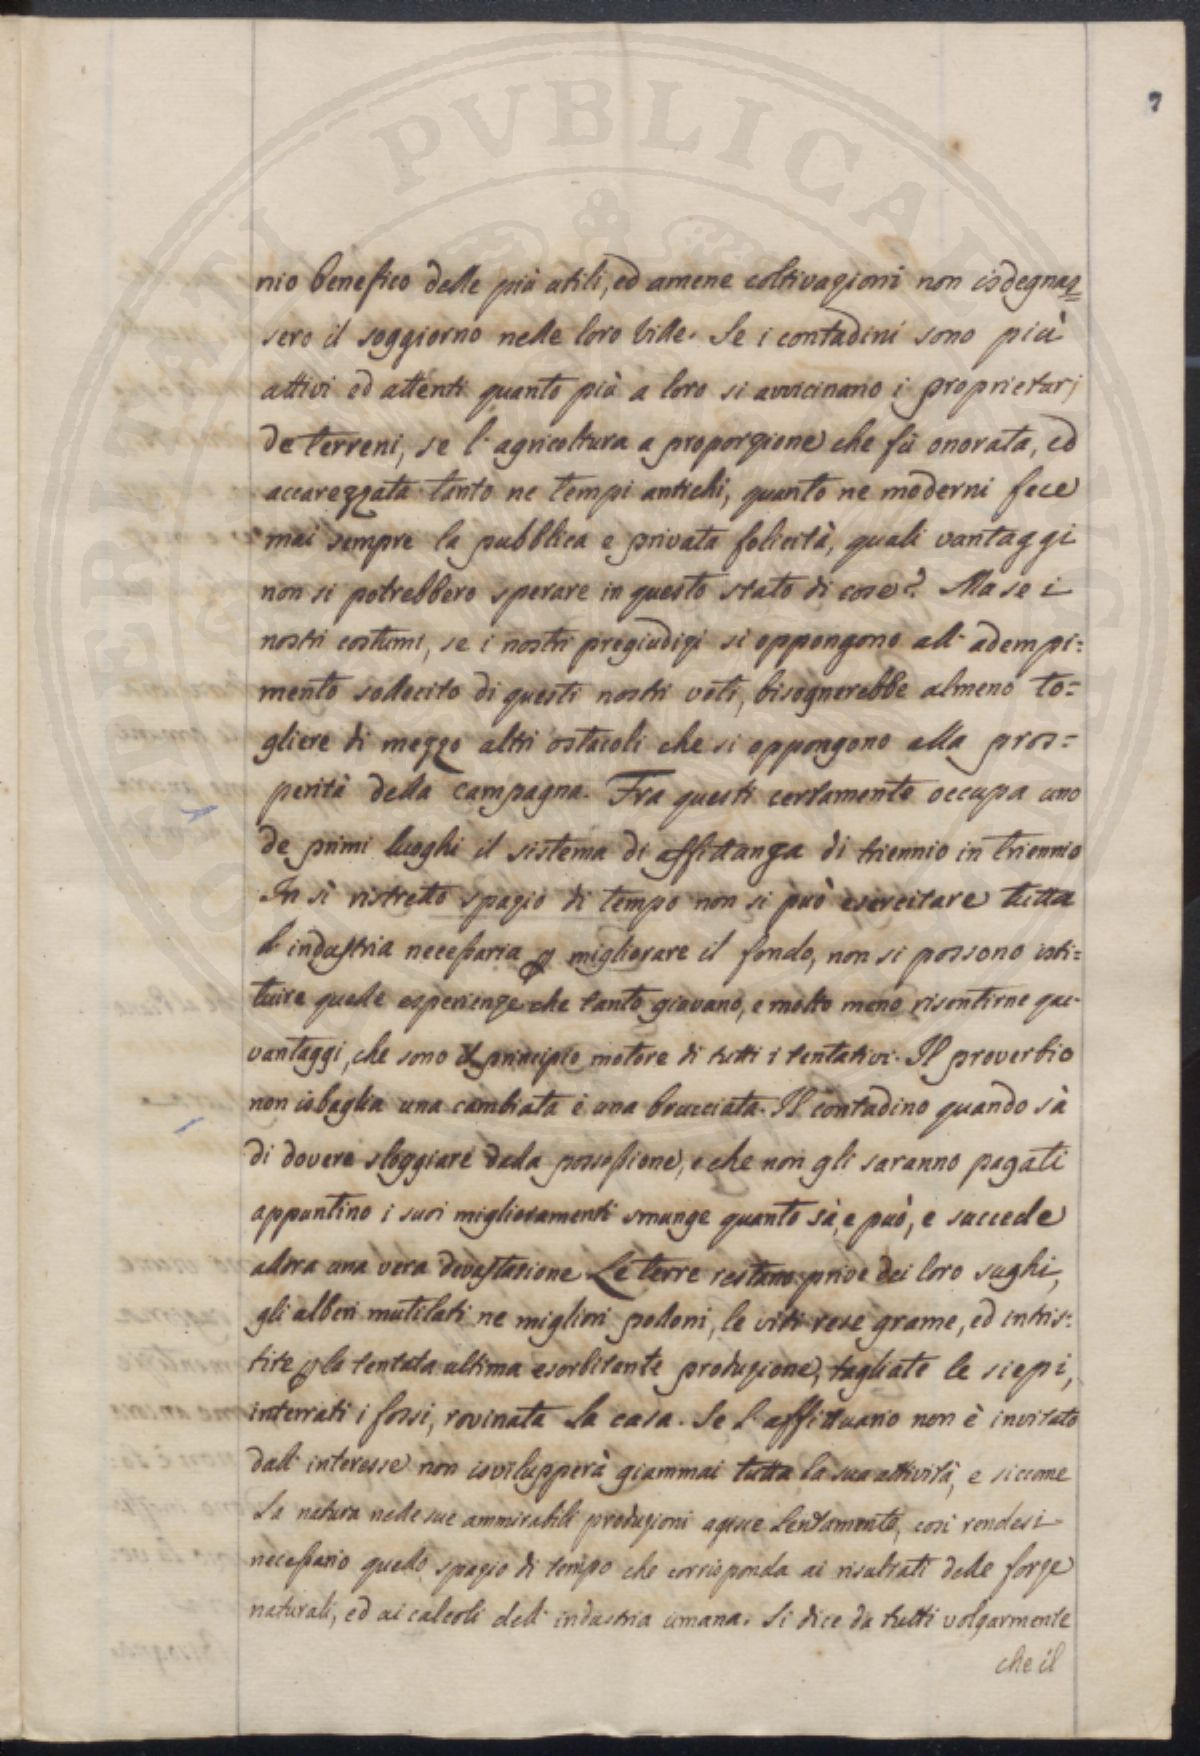 7
nio benefico delle più utili, ed amene coltivazioni non isdegnas=
sero il soggiorno nelle loro Ville. Se i contadini sono più
attivi ed attenti quanto più a loro si avvicinano i proprietarj
de terreni, se l'agricoltura a proporzione che fù onorata, ed
accarezzata tanto ne tempi antichi, quanto ne moderni fece
mai sempre la pubblica e privata felicità, quali vantaggi
non si potrebbero sperare in questo stato di cose? Ma se i
nostri costumi, se i nostri pregiudizi si oppongono all'adempi=
mento sollecito di questi nostri voti, bisognerebbe almeno to=
gliere di mezzo altri ostacoli che si oppongono alla pros=
perità della campagna. Fra questi certamente occupa uno
de primi luoghi il sistema di affittanza di triennio in triennio
In sì ristretto spazio di tempo non si può esercitare tutta
l'industria necessaria p migliorare il fondo, non si possono isti=
tuire quelle esperienze che tanto giovano, e molto meno risentirne que'
vantaggi, che sono il principio motore di tutti i tentativi. Il proverbio
non isbaglia una cambiata è una bruciata. Il contadino quando sà
di dovere sloggiare dalla possessione, e che non gli saranno pagati
appuntino i suoi miglioramenti smunge quanto sà, e può, e succede
allora una vera devastazione Le terre restano prive dei loro sughi,
gli alberi mutilati ne migliori polloni, le viti rese grame, ed intris=
tite p la tentata ultima esorbitante produzione, tagliate le siepi,
interrati i fossi, rovinata la casa. Se l'affittuario non è invitato
dall'interesse non isvilupperà giammai tutta la sua attività, e siccome
la natura nelle sue ammirabili produzioni agisce lentamente, così rendesi
necessario quello spazio di tempo che corrisponda ai risultati delle forze
naturali, ed ai calcoli dell'industria umana. Si dice da tutti volgarmente
che il